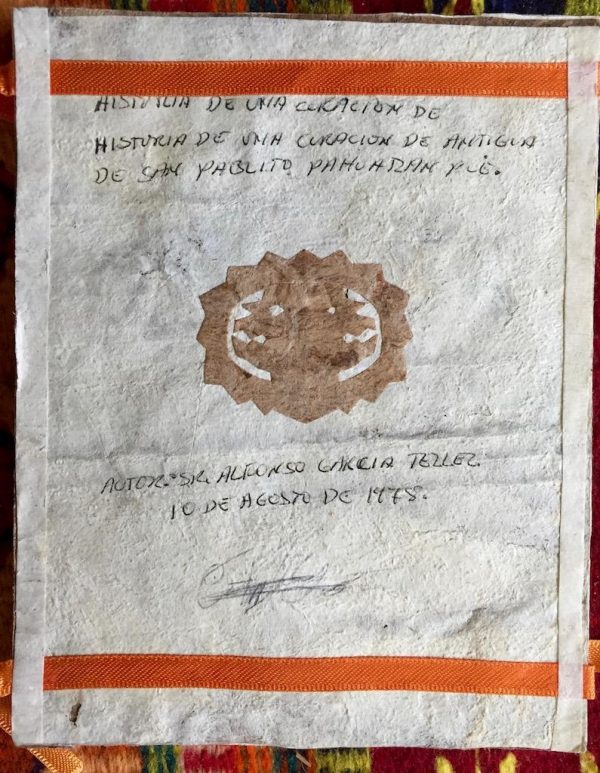 HISTORIA DE UNA CURACION DE
HISTORIA DE UNA CURACION DE ANTIGUA
DE SAN PABLITO, PAHUATLAN PUE.
AUTOR: SR. ALFONSO GARCIA TELLEZ.
10 DE AGOSTO DE 1978.